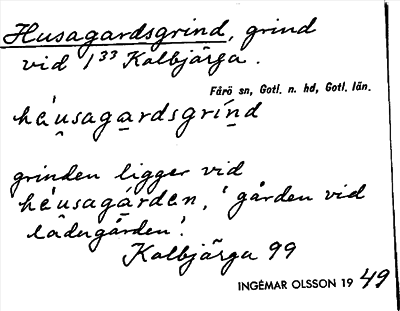 Husagardsgrind, grind
vid 1³³ Kalbjärga.
Fårö sn, Gotl. n. hd, Gotl. län.
hé̯usaga̲rdsgrín̲d
grinden ligger vid
'hé̯usagá̲rden, 'gården vid
ladugården'.
Kalbjärga 99
INGEMAR OLSSON 1949